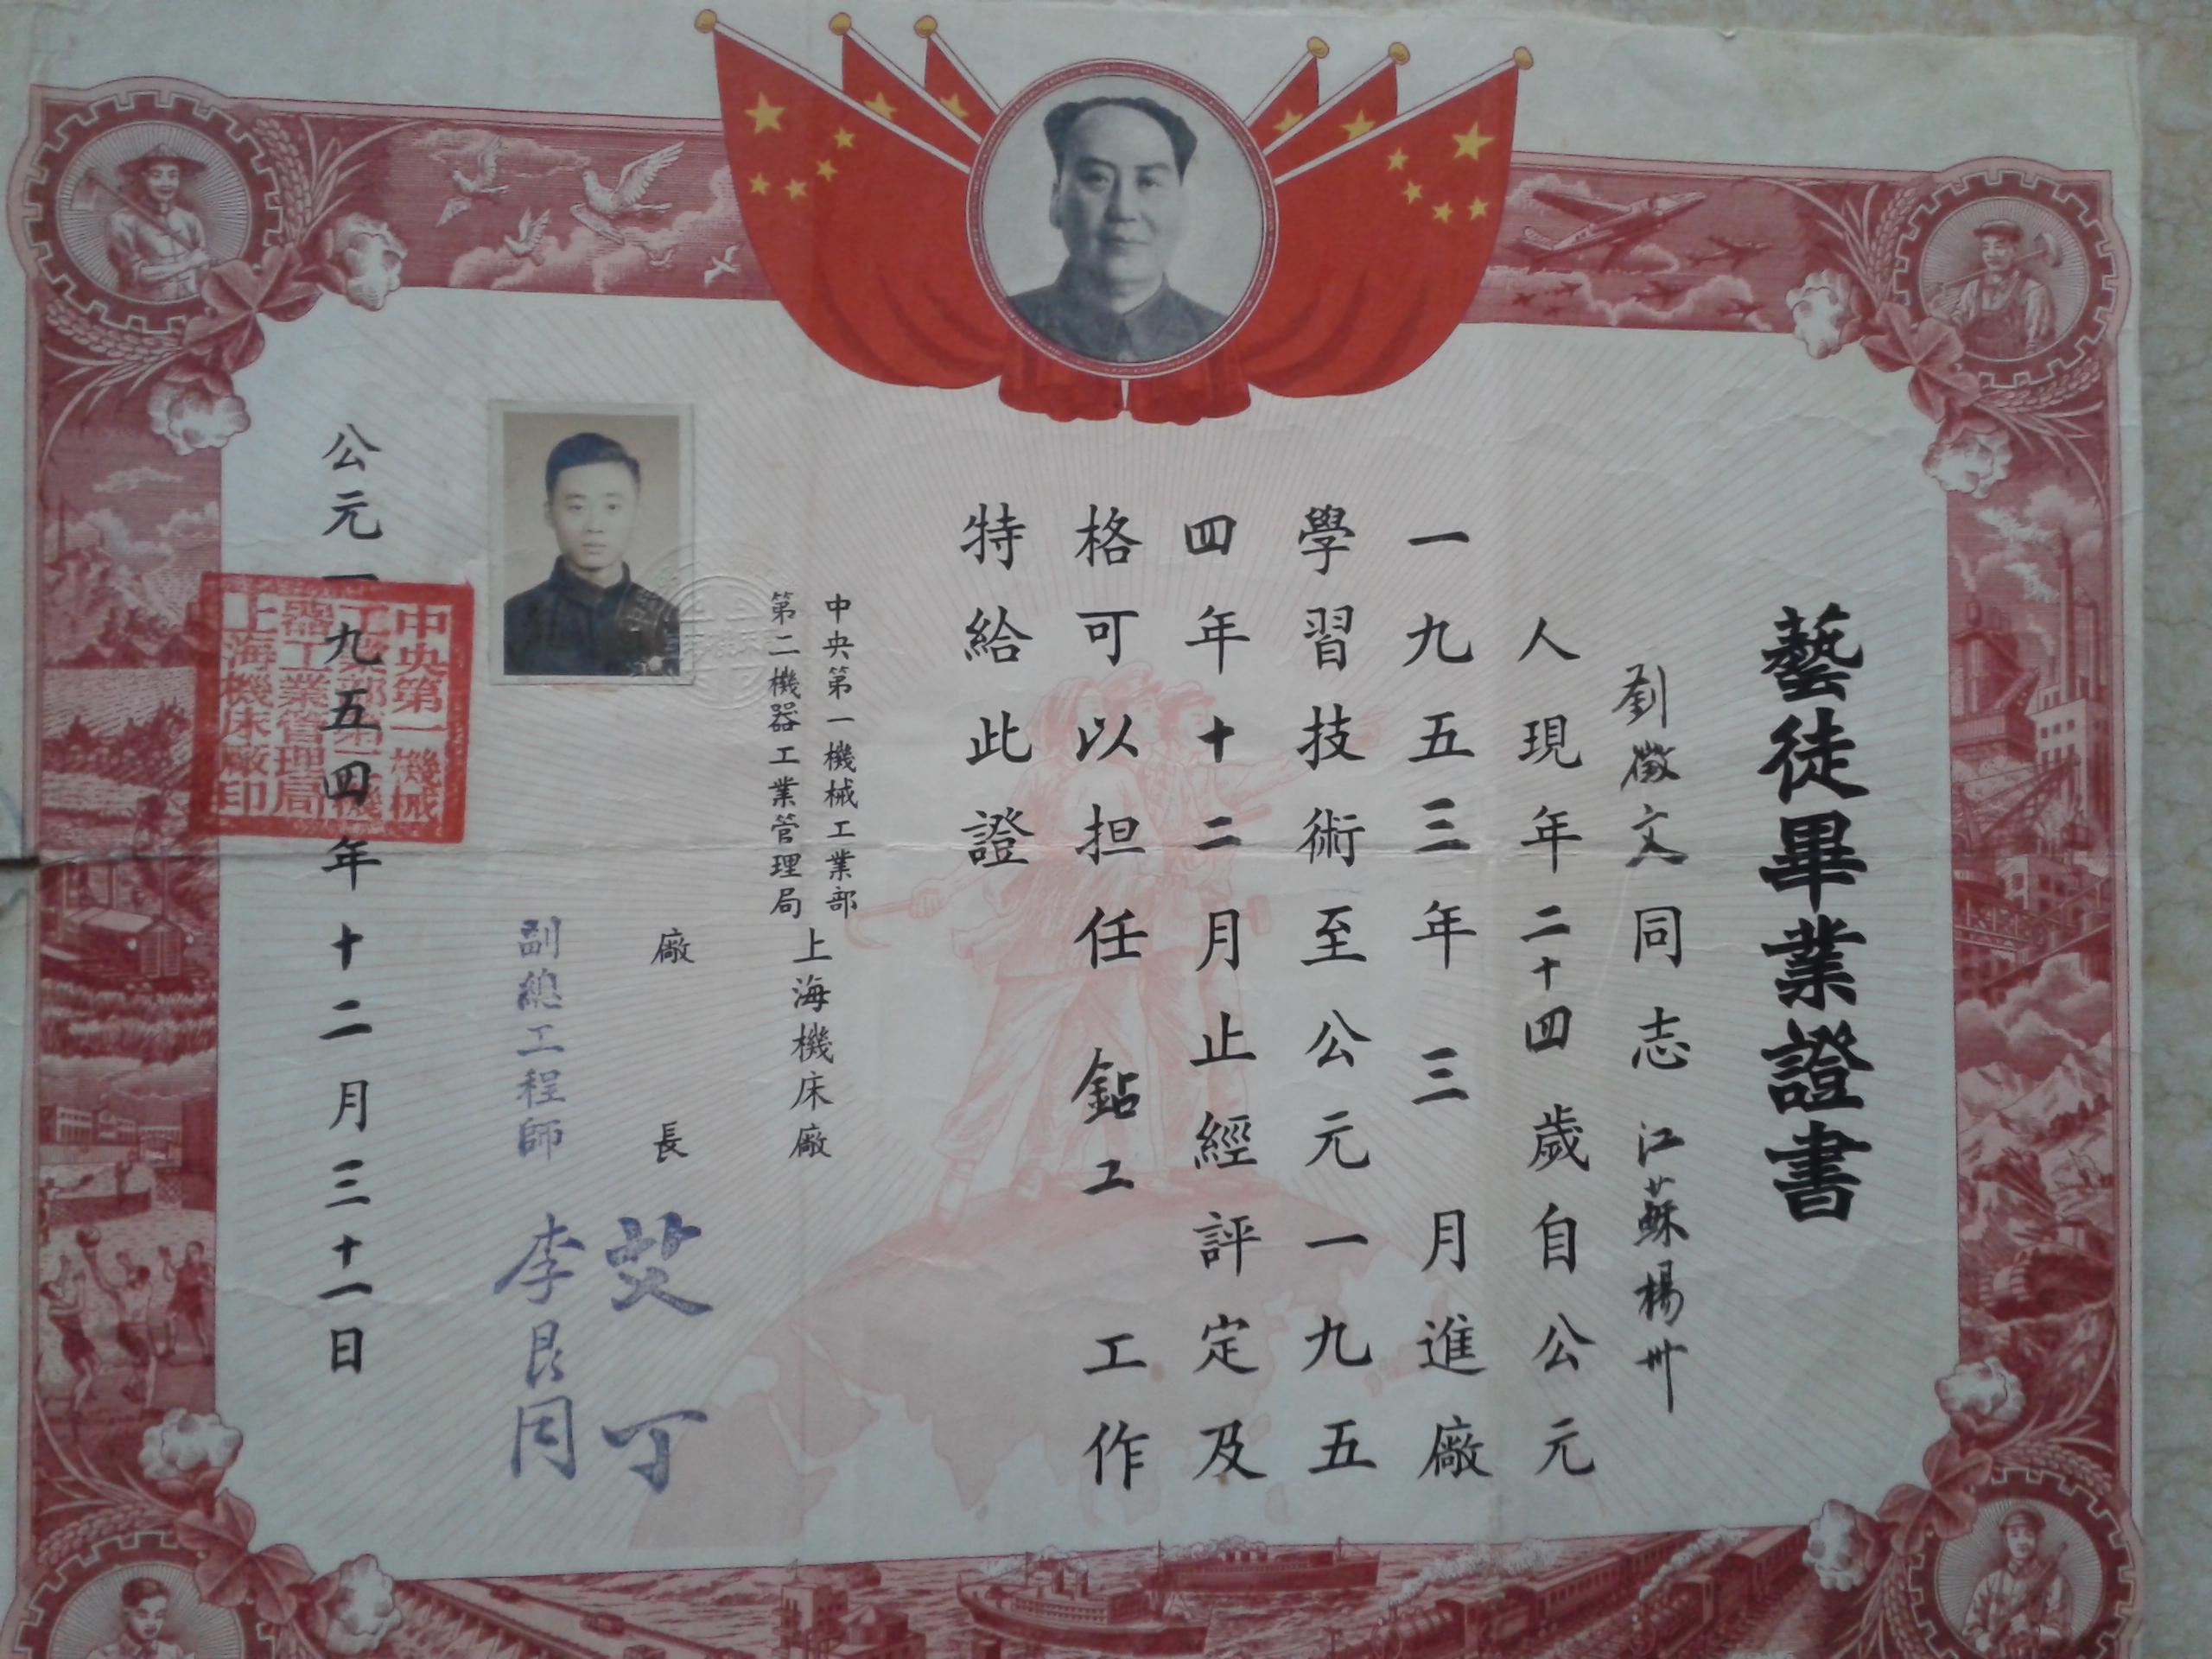 藝徒畢業證書
劉徵文同志江蘇楊州
人現年二十四歲自公元
一九五三年三月進廠
學習技術至公元一九五
四年十二月止經評定及
格可以担任鉆工工作
特給此證
中央第一機械工業部
第二機器工業管理局
上海機床廠
廠長 艾丁
副總工程師 李
公元一九五四年十二月三十一日
中央第一機械
工業部第二機
器工業管理局
上海機床廠印